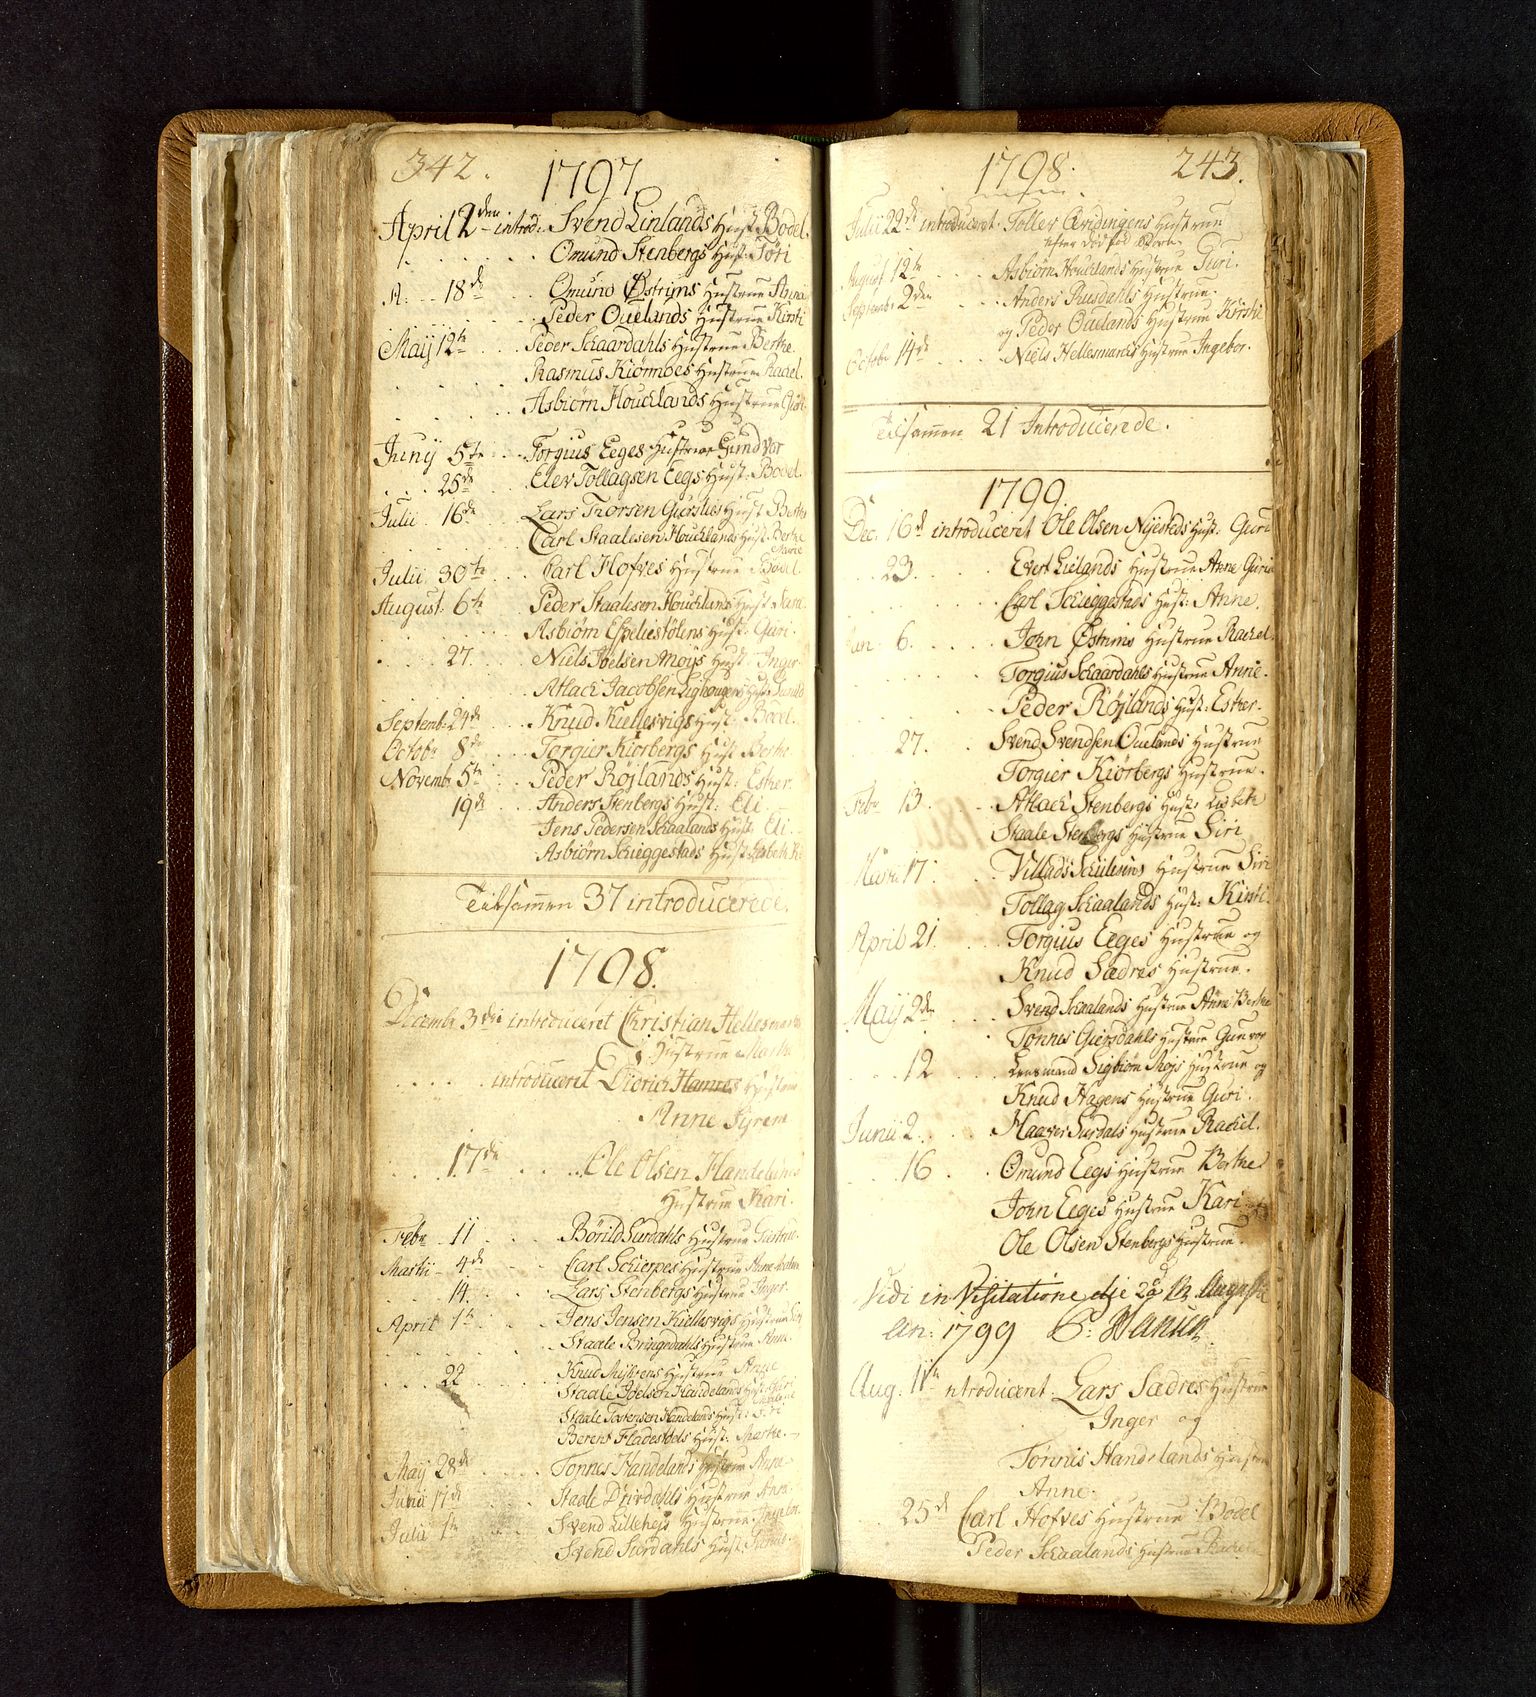 342.
1797
April 2den introd: Svend Linlands Hust: Bodel.
Omund Stenbergs Hust: Töri
A: 18de Omund Østrims Hustrue Anna
Peder Ouelands Hustrue Kirsti
Maij 12te Peder Schaardahls Hustrue Berthe
Rasmus Kiörmoes Hustrue Rachel.
Asbiörn Houchlands Hustrue Guri
Junij 5te Torgius Eeges Hustrue Gundvor
25de Elev Tollagsen Eegs Hust: Bodel.
Julii 16de Lars Thorsen Gurslies Hust Berthe
Carl Staalesen Houchlands Hust. Berthe
Marie
Julii 30te Carl Hofves Hustrue Bodel
August. 6te Peder Staalesen Houchlands Hust. Sara.
Asbiörn Espeliestölens Hust: Guri.
27. Niels Joelsen Moijs Hust. Inger
Atlach Jacobsen Hust:
Septemb: 24de Knud Kiellesvigs Hust: Bodel.
Octobr 8de Torgier Kiörbergs Hust Berthe
Novembr 5te Peder Röjlands Hust: Esther.
19de Anders Stenbergs Hust: Eli
Jens Pedersen Schaalands Hust Eli.
Asbiörn Schieggestads Hust Lisbeth
Tilsammen 37 introducerede.
1798.
Decembr 3die introduceret Christian Hellesmarks
Hustrue Marthe
introduceret Diderich Hamres Hustrue
Anne
17de Ole Olsen Handelands
Hustrue Kari.
Febr 11 Börild Surdahls Hustrue
Martii 4de Carl Schierpes Hustrue Anne
14. Lars Stenbergs Hustrue Inger.
April 1te Jens Jensen Kiellesvigs Hustrue
Staale Bringedahls Hustrue Anne.
22 Knud Myhrens Hustrue Anne
Staale Joelsen Handelands Hust: Guri
Staale Tostensen Handelands Hust: Siri
Berent Fladestöels Hust: Marthe.
Maij 28de Tönnes Handelands Hustrue Anne
Junii 17de Staale Drivdahls Hustrue Anne
Julii 1te Svend Lilleheys Hustrue
Svend Surdahls Hust.
1798. 243.
Julii 22de introduceret Tollev Hustrue
efter
August 12te Asbiörn Houchlands Hustrue Guri.
Septembr 2den Anders Rusdahls Hustrue.
og Peder Ouelands Hustrue Kirsti
Octobr 14de Niels Hellesmarks Hustrue Ingebor.
Tilsammen 21 Introducerede.
1799.
Dec. 16de introduceret Ole Olsen Nijesteds Hust: Guri
23. Evert Lielands Hustrue Anne Gurie
Carl Schieggestads Hust: Anne.
Jan. 6. John Østrims Hustrue Rachel.
Torgius Schaardahls Hustrue Anne.
Peder Röjlands Hust: Esther.
27. Svend Svendsen Ouelands Hustrue
Torgier Kiörbergs Hustrue.
Febr 13. Atlach Stenbergs Hust: Lisbeth
Staale Stenbergs Hustrue Siri
Martii 17. Villads Hustrue Siri
Tollag Schaalands Hust: Kirsti.
April 21. Torgius Eeges Hustrue og
Knud Sædres Hustrue.
Maij 2den Svend Schaalands Hustrue Anne Berthe
Tönnes Giersdahls Hustrue Gunvor
12 Lensmand Sigbiörn Mojs Hustrue og
Knud Hagens Hustrue Guri.
Junii 2. Haaver Surdals Hustrue Rachel.
16 Omund Eegs Hustrue Berthe
John Eeges Hustrue Kari
Ole Olsen Stenbergs Hustrue.
Vidi in Visitatione die Augusti
an: 1799
Aug: 11te introduceret. Lars Sædres Hustrue
Inger og
Tönnis Handelands Hustrue
Anne.
25de Carl Hofves Hustrue Bodel
Peder Schaalands Hustrue Rachel